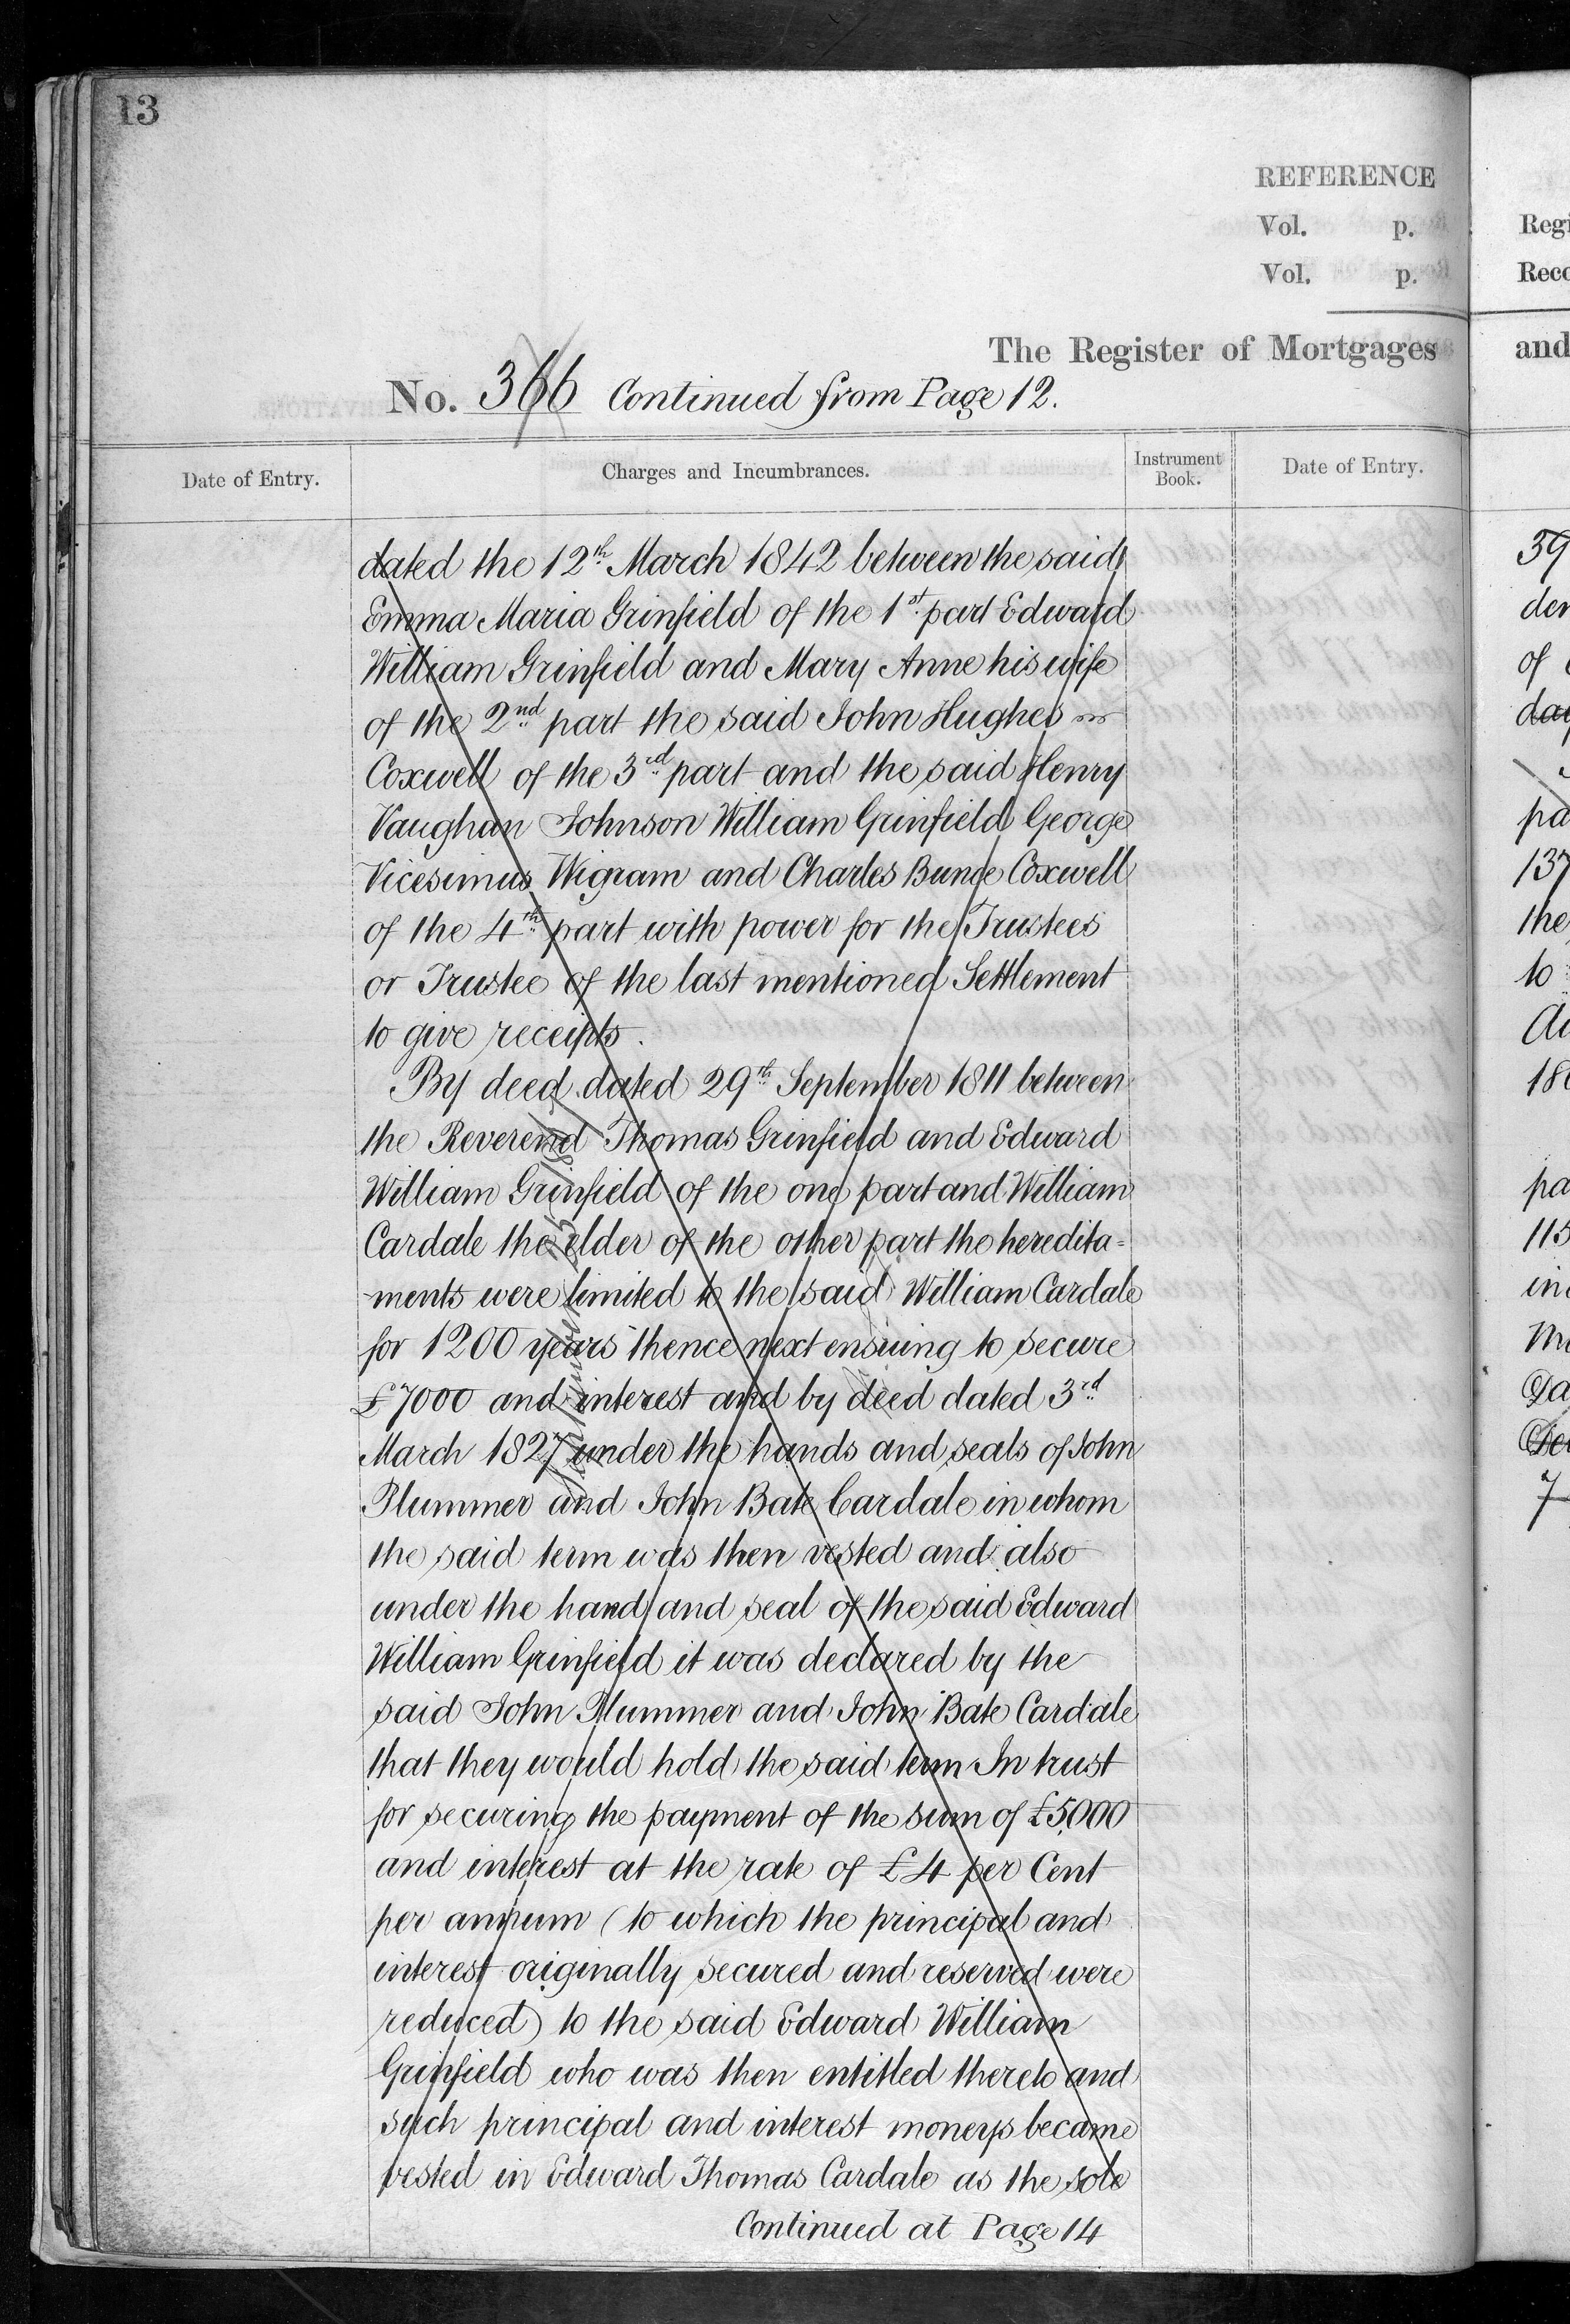 13
REFERENCE
Vol. p.
Vol. p.
The Register of Mortgages
No. 366 Continued from Page 12.
Date of Entry. Charges and Incumbrances. Instrument Book. Date of Entry.
dated the 12th March 1842 between the said
Emma Maria Grinfield of the 1st part Edward
William Grinfield and Mary Anne his wife
of the 2nd part the said John Hughes
Coxwell of the 3rd part and the said Henry
Vaughan Johnson William Grinfield George
Vicesimus Wigram and Charles Bunce Coxwell
of the 4th part with power for the Trustees
or Trustee of the last mentioned Settlement
to give receipts.
By deed dated 29th September 1811 between
the Reverend Thomas Grinfield and Edward
William Grinfield of the one part and William
Cardale the elder of the other part the heredita=
-ments were limited to the said William Cardale
for 1200 years thence next ensuing to secure
£7000 and interest and by deed dated 3rd
March 1827 under the hands and seals of John
Plummer and John Bate Cardale in whom
the said term was then vested and also
under the hand and seal of the said Edward
William Grinfield it was declared by the
said John Plummer and John Bate Cardale
that they would hold the said term In trust
for securing the payment of the sum of £5000
and interest at the rate of £4 per Cent
per annum (to which the principal and
interest originally secured and reserved were
reduced) to the said Edward William
Grinfield who was then entitled thereto and
such principal and interest moneys became
vested in Edward Thomas Cardale as the sole
Continued at Page 14
Regi
Reco
and
39
den
of
day
pa
137
the
to
186
pa
115
in
Da
7